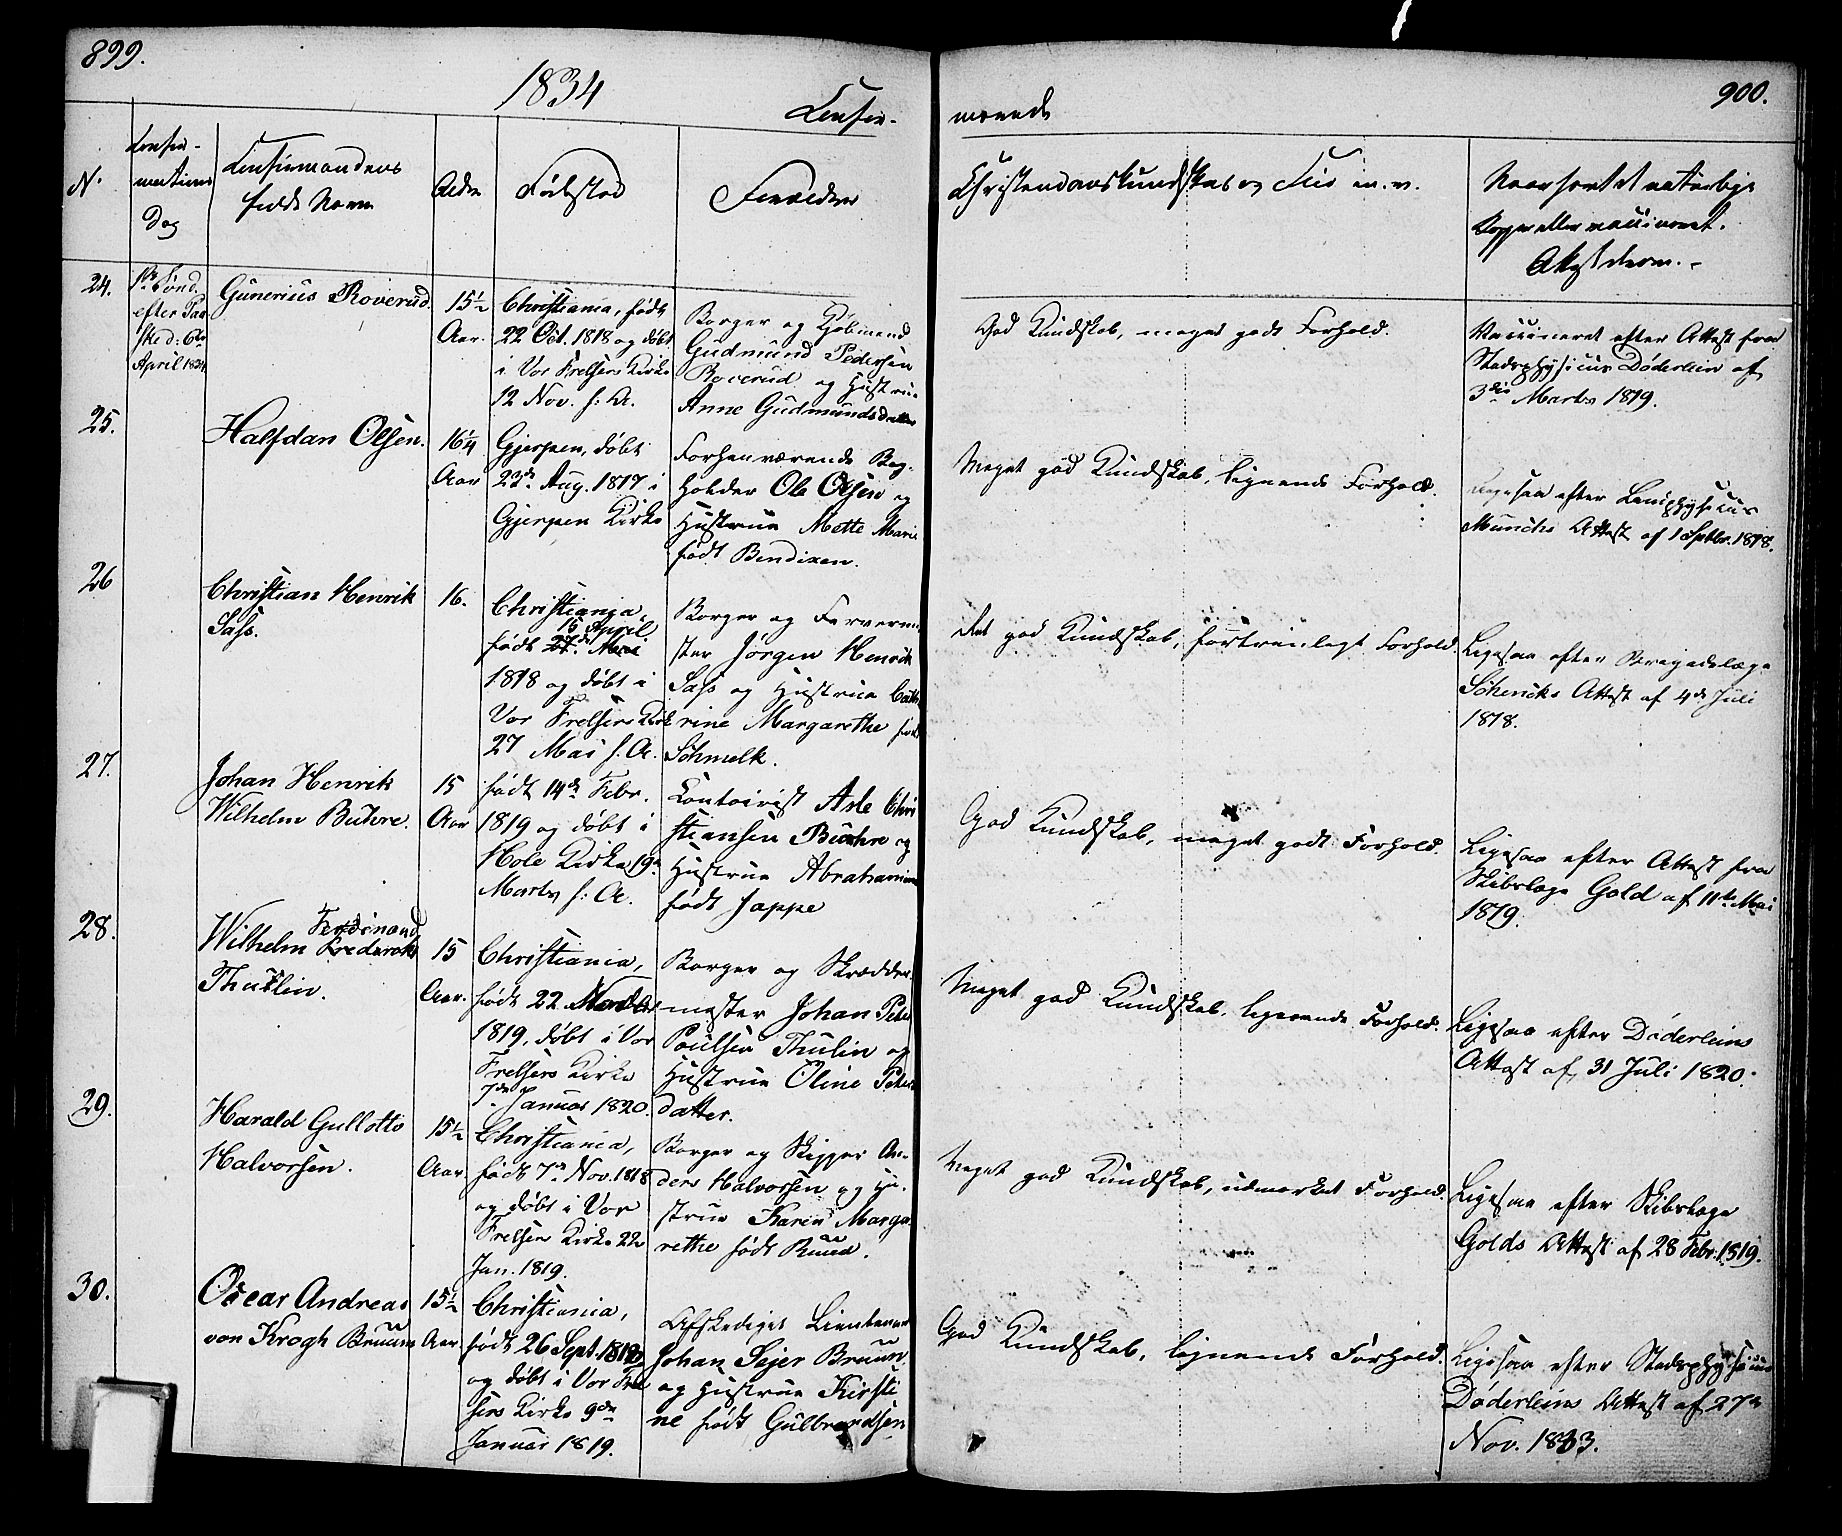 899.
1834
Confir-
N.
Confir-
mations
Dag
Confirmandens
fulde Navn
Alder
Fødested
Forældre
24.
1ste Sønd.
efter Paa
ske d: 6te
April 1834
Gunerius Roverud.
15½
Aar.
Christiania, født
22 Oct. 1818 og døbt
i Vor Frelsers Kirke
12 Nov. s: A.
Borger og Kjøbmand
Gudmund Pedersen
Roverud og Hustrue
Anne Gudmundsdatter
25.
Halfdan Olsen.
16¼
Aar
Gjerpen, døbt
22de Aug. 1817 i
Gjerpen Kirke
Forhenværende Bog-
holder Ole Olsen og
Hustrue Mette Marie
født Bendixen.
26
Christian Henrik
Sass.
16.
Christiania,
15 April
født 27de Mai
1818 og døbt i
Vor Frelsers Kirke
27 Mai s. A.
Borger og Farverme
ster Jørgen Henrik
Sass og Hustrue Cath
rine Margarethe født
Schmelk.
27.
Johan Henrik
Wilhelm Buhre.
15
Aar
født 14de Febr.
1819 og døbt i
Hole Kirke 19de
Marts s: A.
Contoirist Asle Chri
stiansen Buhre og
Hustrue Abrahamine
født Jappe
28.
Ferdinand
Wilhelm Frederik
Thulin.
15
Aar.
Christiania,
født 22
1819, døbt i Vor
Frelsers Kirke
7de Januar 1820.
Borger og Skrædder
mester Johan Peter
Poulsen Thulin og
Hustrue Oline Peters
datter.
29.
Harald Gullotto
Halvorsen.
15½
Aar
Christiania,
født 7de Nov. 1818
og døbt i Vor
Frelsers Kirke 22
Jan. 1819.
Borger og Skipper An-
ders Halvorsen og Hu-
strue Karen Marga
rethe født Ruud.
30.
Oscar Andreas
von Krogh Bruun
15½
Aar
Christiania,
født 26 Sept. 1818
og døbt i Vor Frel
sers Kirke 9de
Januar 1819.
Afskediget Lieutenant
Johan Sejer Bruun
og Hustrue Kirsti
ne født Gulbrandsen
900.
merede
Christendomskundskab og Flid m. v.
Naar havt de naturlige
Kopper eller vaccineret.
Attest derom.-
God Kundskab, meget godt Forhold.
Vaccineret efter Attest fra
Stadsphysicus Døderlein af
3die Marts 1819.
Meget god Kundskab, lignende Forhold.
Ligesaa efter Landphysicus
Munchs Attest af 1 Septbr. 1818.
Det god Kundskab, fortrinligt Forhold.
Ligesaa efter Brigadelæge
Schencks Attest af 4de Juli
1818.
God Kundskab, meget godt Forhold.
Ligesaa efter Attest fra
Skibslæge Gold af 11te Mai
1819.
Meget god Kundskab, lignende Forhold.
Ligesaa efter Døderleins
Attest af 31 Juli 1820.
Meget god Kundskab, udmærket Forhold.
Ligesaa efter Skibslæge
Golds Attest af 28 Febr. 1819.
God Kundskab, lignende Forhold.
Ligesaa efter Stadsphysicus
Døderleins Attest af 27de
Nov. 1833.